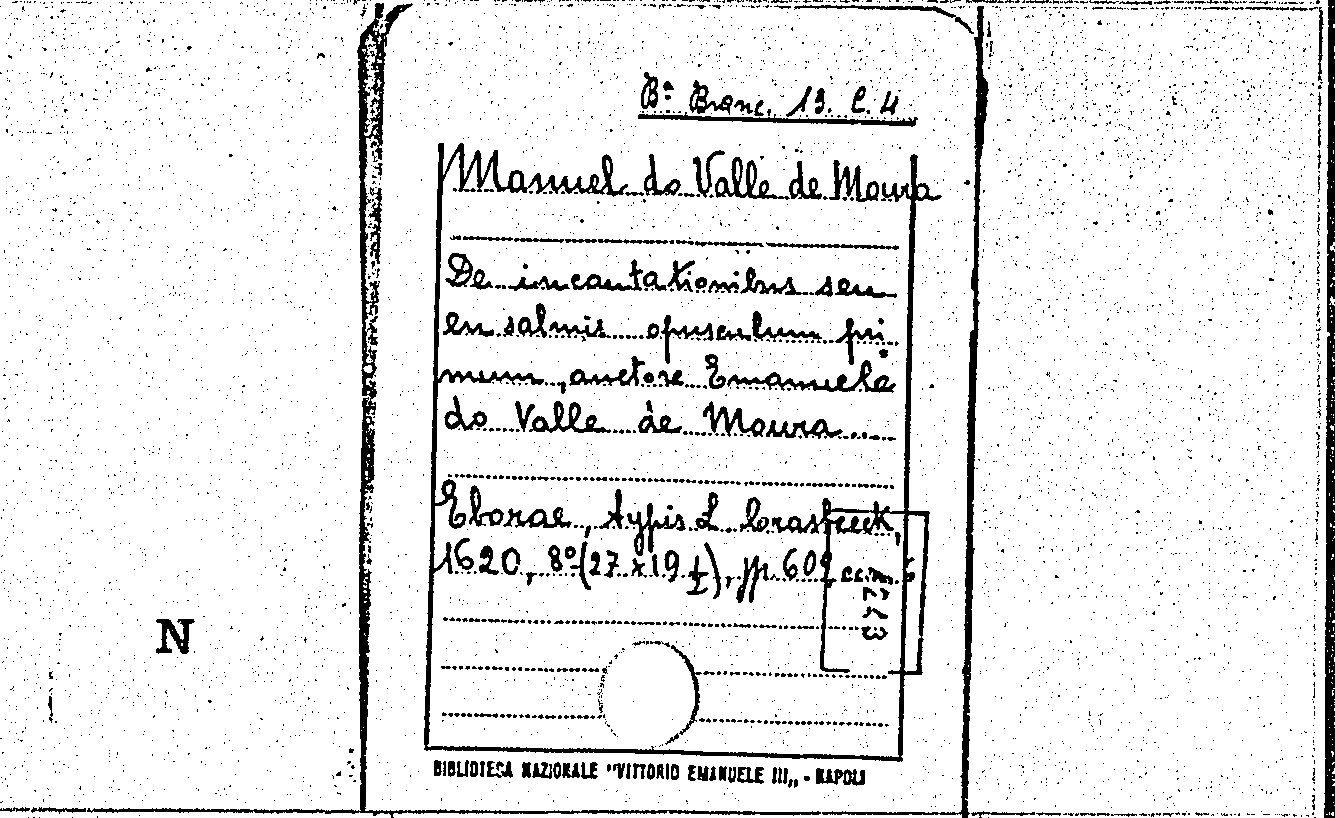 Bª Branc. 13. C. 4
Manuel do Valle de Moura
De incantationibus seu
ensalmis opusculum pri
mum, auctore Emanuele
do Valle de Moura...
Eborae, typis L. Crasbeeck,
1620, 8º (27 x 19 ½), pp. 60
N
BIBLIOTECA NAZIONALE "VITTORIO EMANUELE III„ - NAPOLI